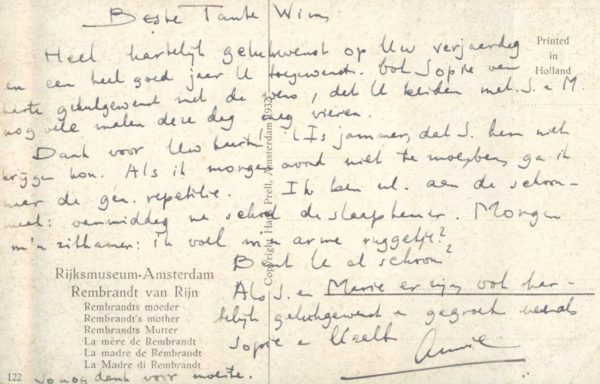 Beste Tante Wim,
Heel hartelijk gelukgewenst op Uw verjaardag
en een heel goed jaar U toegewenst. Ook Sopie van
harte gelukgewenst met de wens, dat U beiden met S. en M.
nog vele malen deze dag mag vieren.
Dank voor Uw kaart! 't Is jammer, dat S. hem niet
krijgen kon. Als ik morgen avond niet te moe ben, ga ik
naar de gen. repetitie. Ik ben nl. aan de schoon-
maak: vanmiddag na school de slaapkamer. Morgen
m'n zitkamer: ik voel m'n arme ruggetje?
Bent U al schoon?
Als S. en Marie er zijn, ook har-
telijk gelukgewenst en gegroet evenals
Sopie en Uzelf
Annie
Zo nog dank voor moeite.
Printed
in
Holland
Copyright Hans Prell, Amsterdam 1932
Rijksmuseum-Amsterdam
Rembrandt van Rijn
Rembrandts moeder
Rembrandt's mother
Rembrandts Mutter
La mère de Rembrandt
La madre de Rembrandt
La Madre di Rembrandt
122